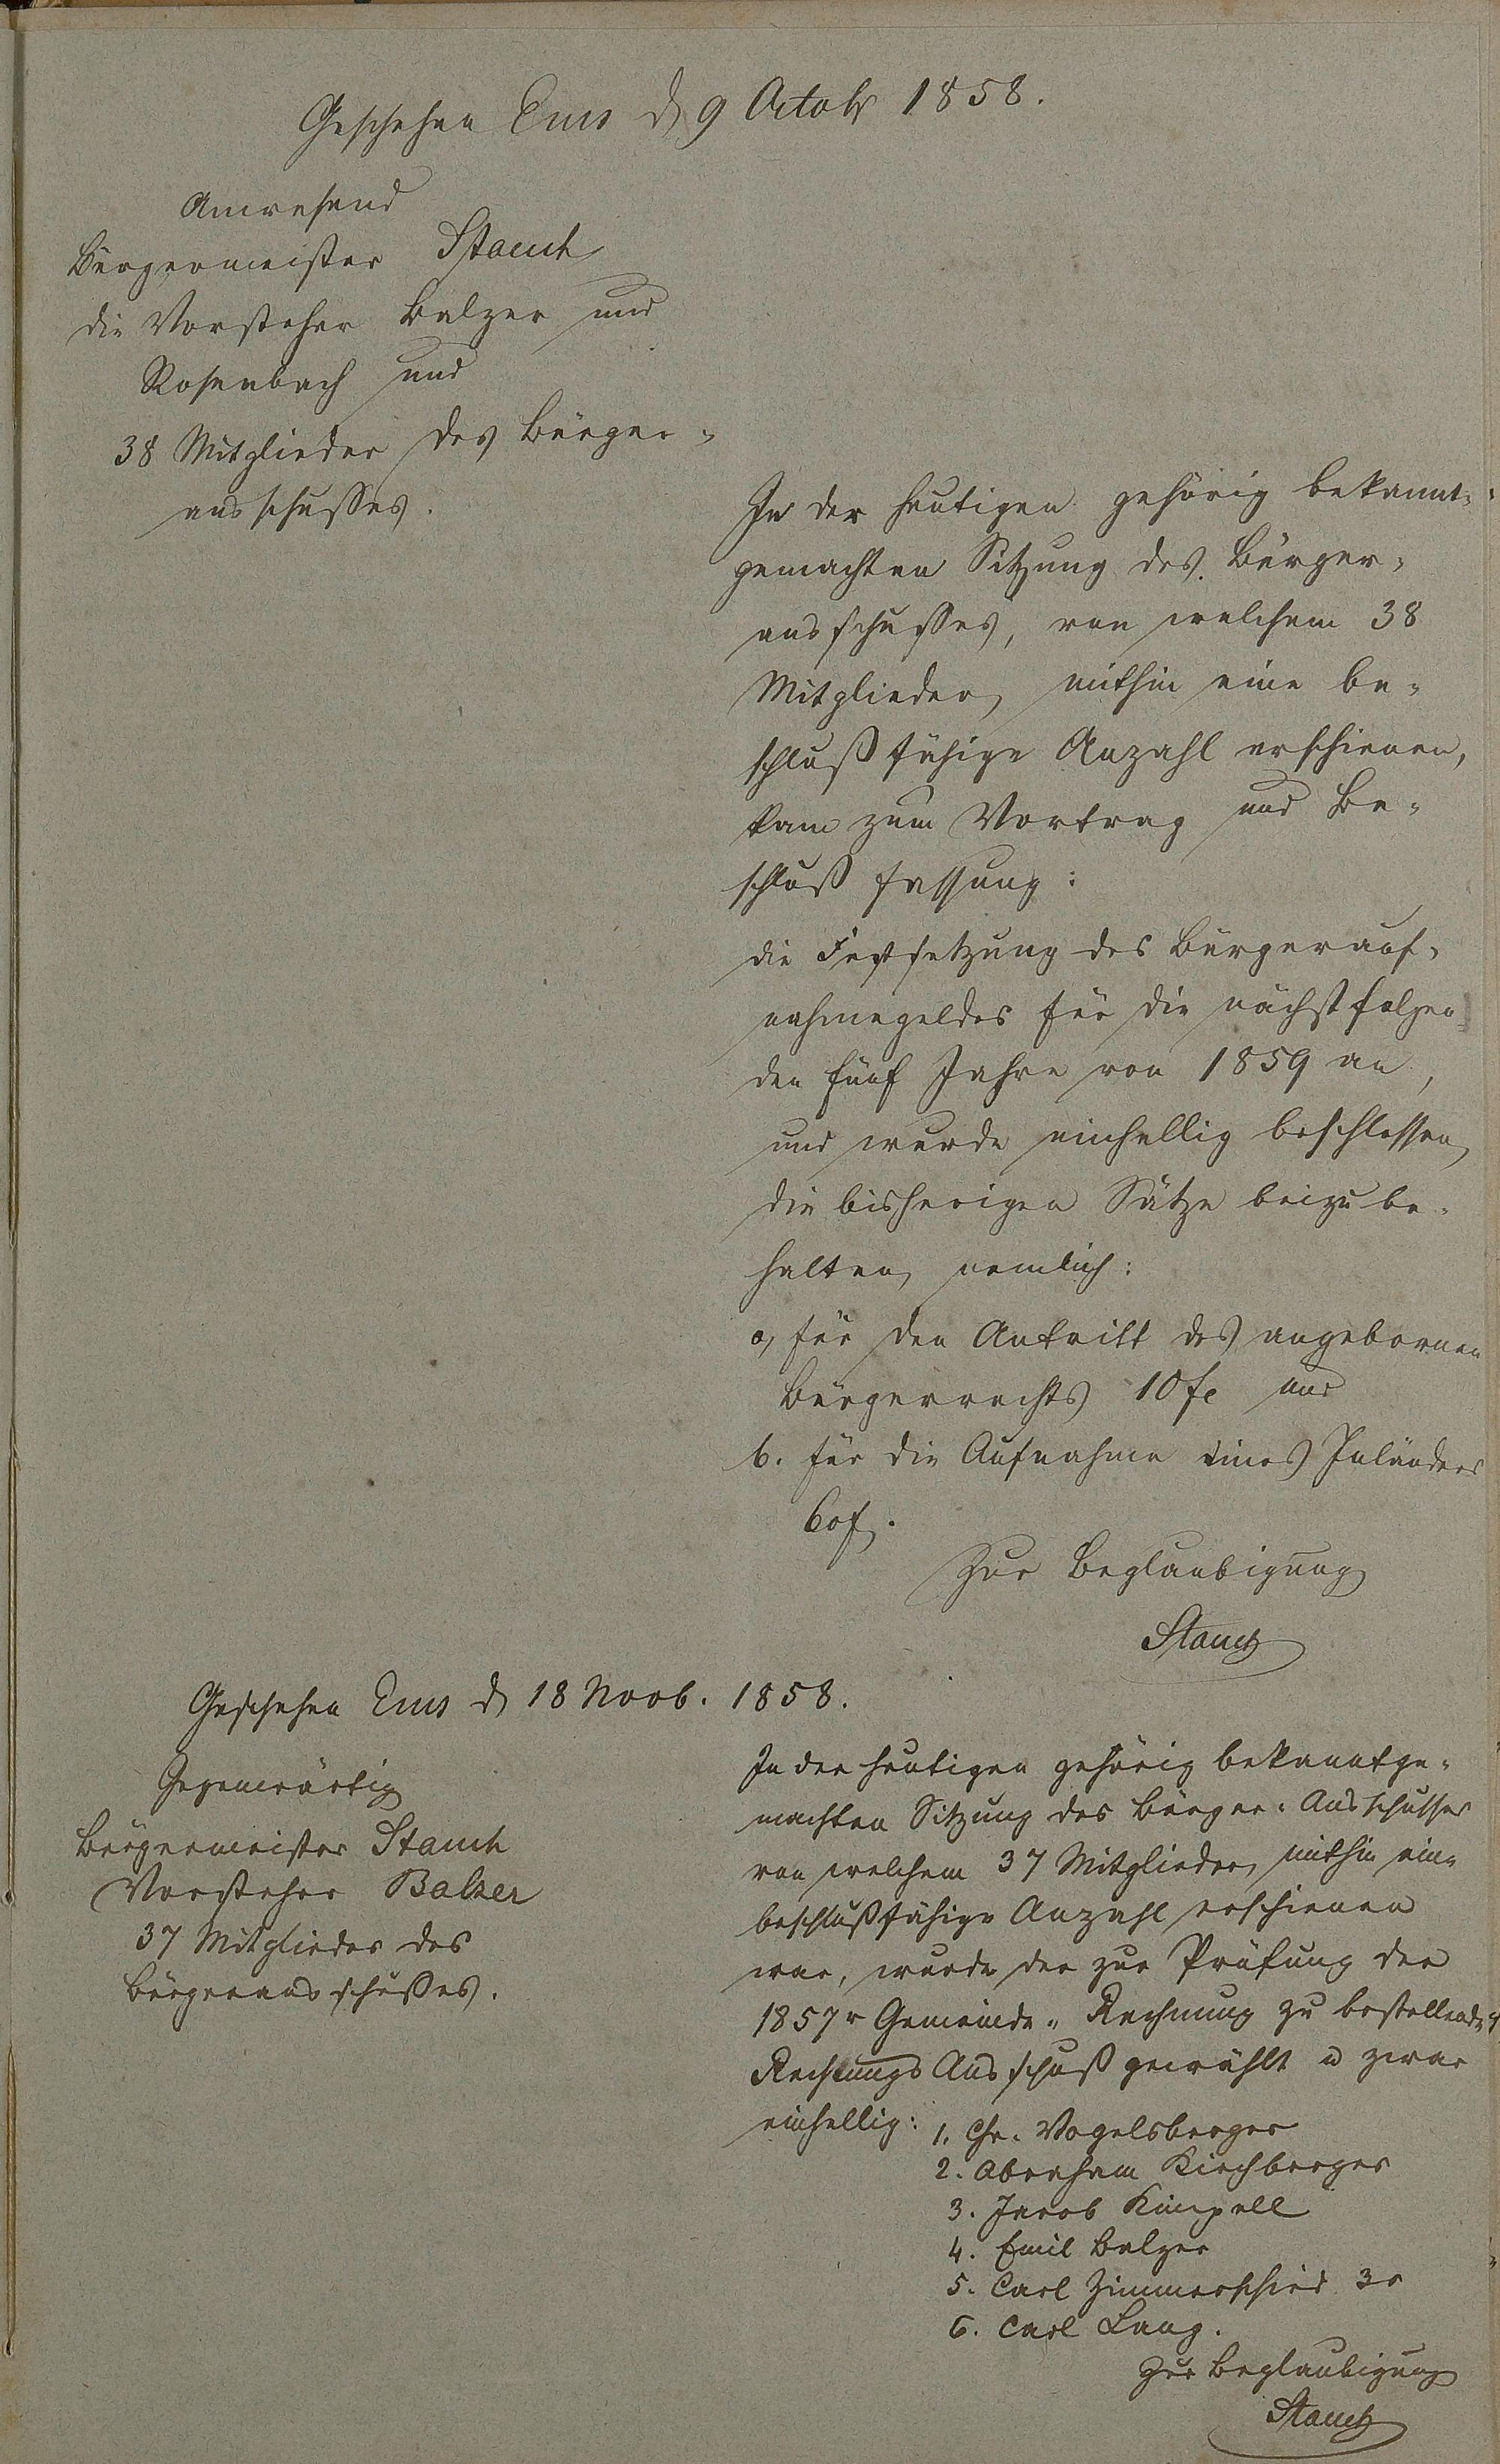 Geschehen Ems d 9 Octobr 1858.
Anwesend
Bürgermeister Stauch
die Vorsteher Balzer und
Rosenbach und
38 Mitglieder des Bürger-
ausschusses.
In der heutigen gehörig bekannt-
gemachten Sitzung des Bürger-
ausschusses, von welchem 38
Mitglieder, mithin eine be-
schlußfähige Anzahl erschienen,
kam zum Vortrag und Be-
schlußfassung:
die Festsetzung des Bürgerauf-
nahmegeldes für die nächstfolgen
den fünf Jahre von 1859 an,
und wurde einhellig beschlossen,
die bisherigen Sätze beizube-
halten, nemlich:
a, für den Antritt des angebornen
Bürgerrechts 10 fl und
b. für die Aufnahme eines Inländers
60 f.
Zur Beglaubigung
Stauch
Geschehen Ems d 18 Novb. 1858.
Gegenwärtig
Bürgermeister Stauch
Vorsteher Balzer
37 Mitglieder des
Bürgerausschusses.
In der heutigen gehörig bekanntge-
machten Sitzung des Bürger-Ausschusses
von welchem 37 Mitglieder, mithin eine
beschlußfähige Anzahl erschienen
war, wurde der zur Prüfung der
1857r Gemeinde-Rechnung zu bestellende
Rechnungs Ausschuß gewählt u zwar
einhellig: 1. Chr. Vogelsberger
2. Abraham Kirchberger
3. Jacob Kimpell
4. Emil Balzer
5. Carl Zimmerschied 3r
6. Carl Lang.
Zur Beglaubigung
Stauch